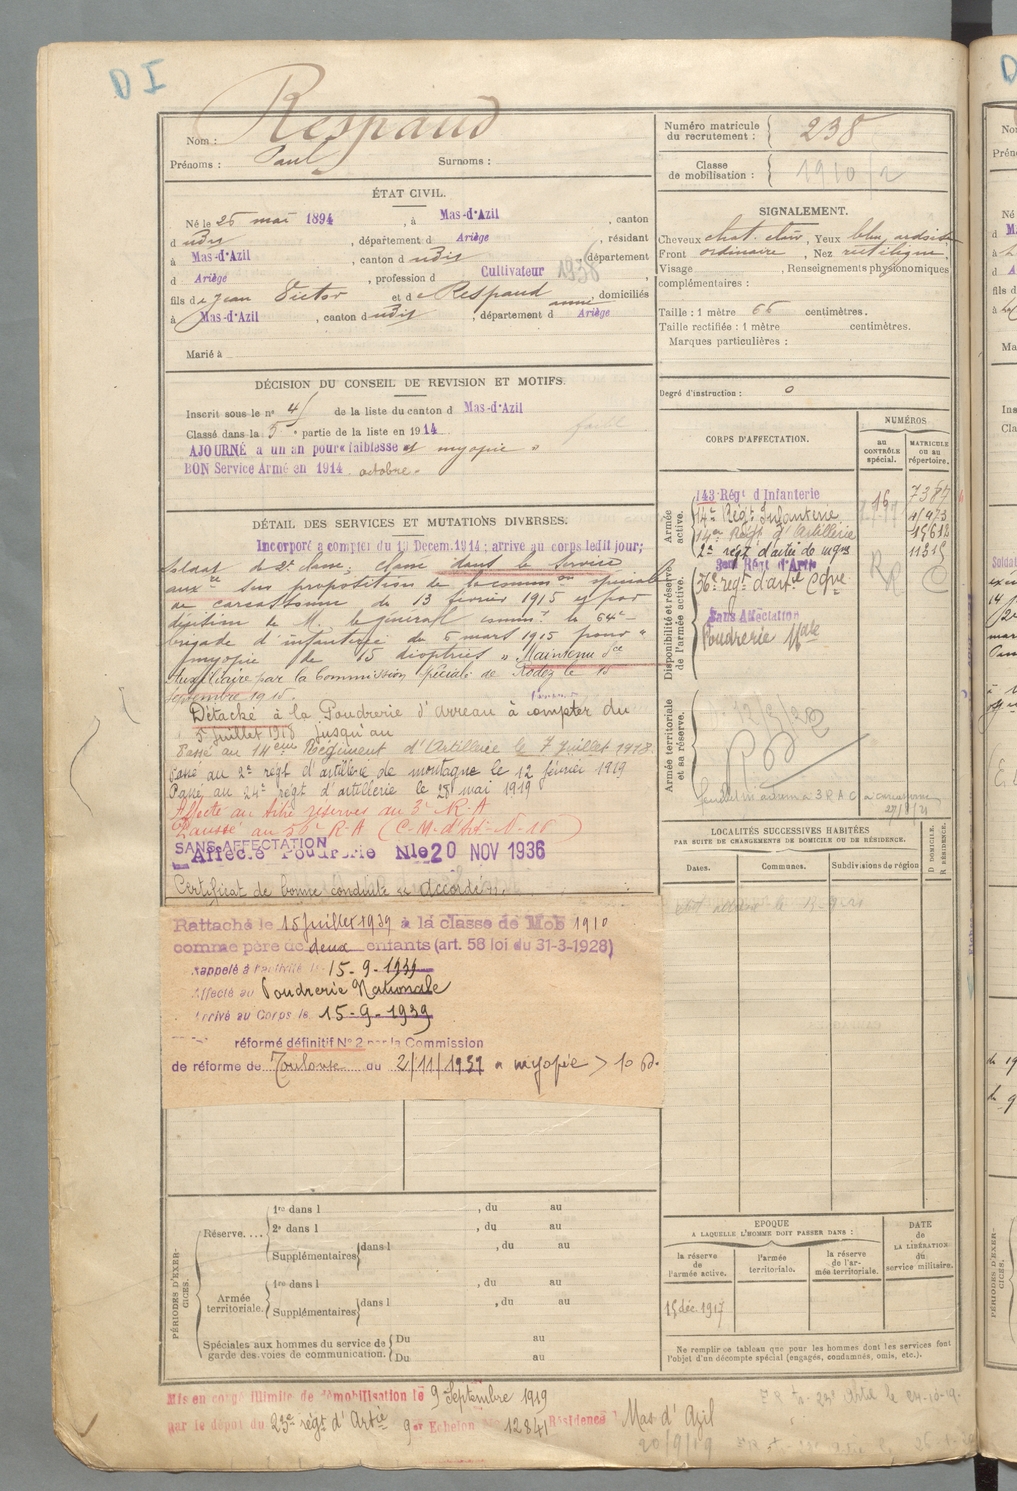 D I
Nom : Respaud
Prénoms : Paul Surnoms :
ÉTAT CIVIL.
Né le 25 mai 1894, à Mas-d'Azil, canton
d udit, département d Ariège, résidant
à Mas-d'Azil, canton d udit département
d Ariège, profession d Cultivateur 1938
fils de Jean Victor et de Respaud anne, domiciliés
à Mas-d'Azil, canton dudit, département d Ariège
Marié à
DÉCISION DU CONSEIL DE REVISION ET MOTIFS.
Inscrit sous le n° 41 de la liste du canton d Mas-d'Azil
Classé dans la 5e partie de la liste en 1914
AJOURNÉ à un an pour « faiblesse et myopie »
BON Service Armé en 1914. octobre.
DÉTAIL DES SERVICES ET MUTATIONS DIVERSES.
Incorporé à compter du Decem. 1914 ; arrivé au corps ledit jour;
Soldat de 2e classe. Classé dans le service
auxre sur proposition de la common spéciale
de Carcassonne du 13 février 1915 et par
décision de M. le général commt la 64e
brigade d'infanterie du 6 mars 1915 pour «
myopie de 15 dioptries ». Maintenu Sce
Auxiliaire par la Commission Spéciale de Rodez le 15
Septembre 1915.
Détaché à la Poudrerie d'arreau à compter du
5 juillet 1918 jusqu'au
Passé au 14eme Régiment d'Artillerie le 7 juillet 1918.
Passé au 2e régt d'artillerie de montagne le 12 février 1919
Passé au 24e régt d'artillerie le 28 mai 1919
Affecté au réserves au 3e R.A
Passé au 56e R.A (C.M. d'Art. N° 18)
SANS AFFECTATION
Affecté Poudrerie Nle 20 NOV 1936
Certificat de bonne conduite « accordé ».
Rattaché le 15 juillet 1939 à la classe de Mob 1910
comme père de deux enfants (art. 58 loi du 31-3-1928)
Rappelé à l'activité le 15-9-1939
Affecté au Poudrerie Nationale
Arrivé au Corps le 15-9-1939
réformé définitif N° 2 par la Commission
de réforme de Toulouse du 2/11/1939 « myopie > 10 D.
PÉRIODES D'EXERCICES.
Réserve.... 1re dans l , du au
2e dans l , du au
Supplémentaires dans l , du au
Armée territoriale. 1re dans l , du au
Supplémentaires dans l , du au
Spéciales aux hommes du service de garde des voies de communication. Du au
Du au
Mis en congé illimité de démobilisation le 9 Septembre 1919
par le dépôt du 23e régt d'Artie 9er Echelon N° 12841 Résidence Mas d'Azil
20/9/19
Numéro matricule du recrutement : 238
Classe de mobilisation : 1910/2
SIGNALEMENT.
Cheveux chat. clair, Yeux bleu ardoisé
Front ordinaire, Nez rectiligne.
Visage , Renseignements physionomiques
complémentaires :
Taille : 1 mètre 66 centimètres.
Taille rectifiée : 1 mètre centimètres.
Marques particulières :
Degré d'instruction : 0
CORPS D'AFFECTATION.
NUMÉROS
au CONTRÔLE spécial.
MATRICULE ou au répertoire.
Armée active.
143 Régt d'Infanterie 16 7387
14e Régt Infanterie
14me Régt d'Artillerie 15612
2e régt d'artie de mgne 11815
Disponibilité et réserve de l'armée active.
3eme Régt d'Artie
56e régt d'art Cgne
Sans Affectation
Poudrerie Nale
Armée territoriale et sa réserve.
LOCALITÉS SUCCESSIVES HABITÉES
PAR SUITE DE CHANGEMENTS DE DOMICILE OU DE RÉSIDENCE.
Dates. Communes. Subdivisions de région
D DOMICILE. R RÉSIDENCE.
EPOQUE
A LAQUELLE L'HOMME DOIT PASSER DANS :
la réserve de l'armée active.
l'armée territoriale.
la réserve de l'armée territoriale.
DATE de LA LIBÉRATION du service militaire.
15 déc. 1917
Ne remplir ce tableau que pour les hommes dont les services font
l'objet d'un décompte spécial (engagés, condamnés, omis, etc.).